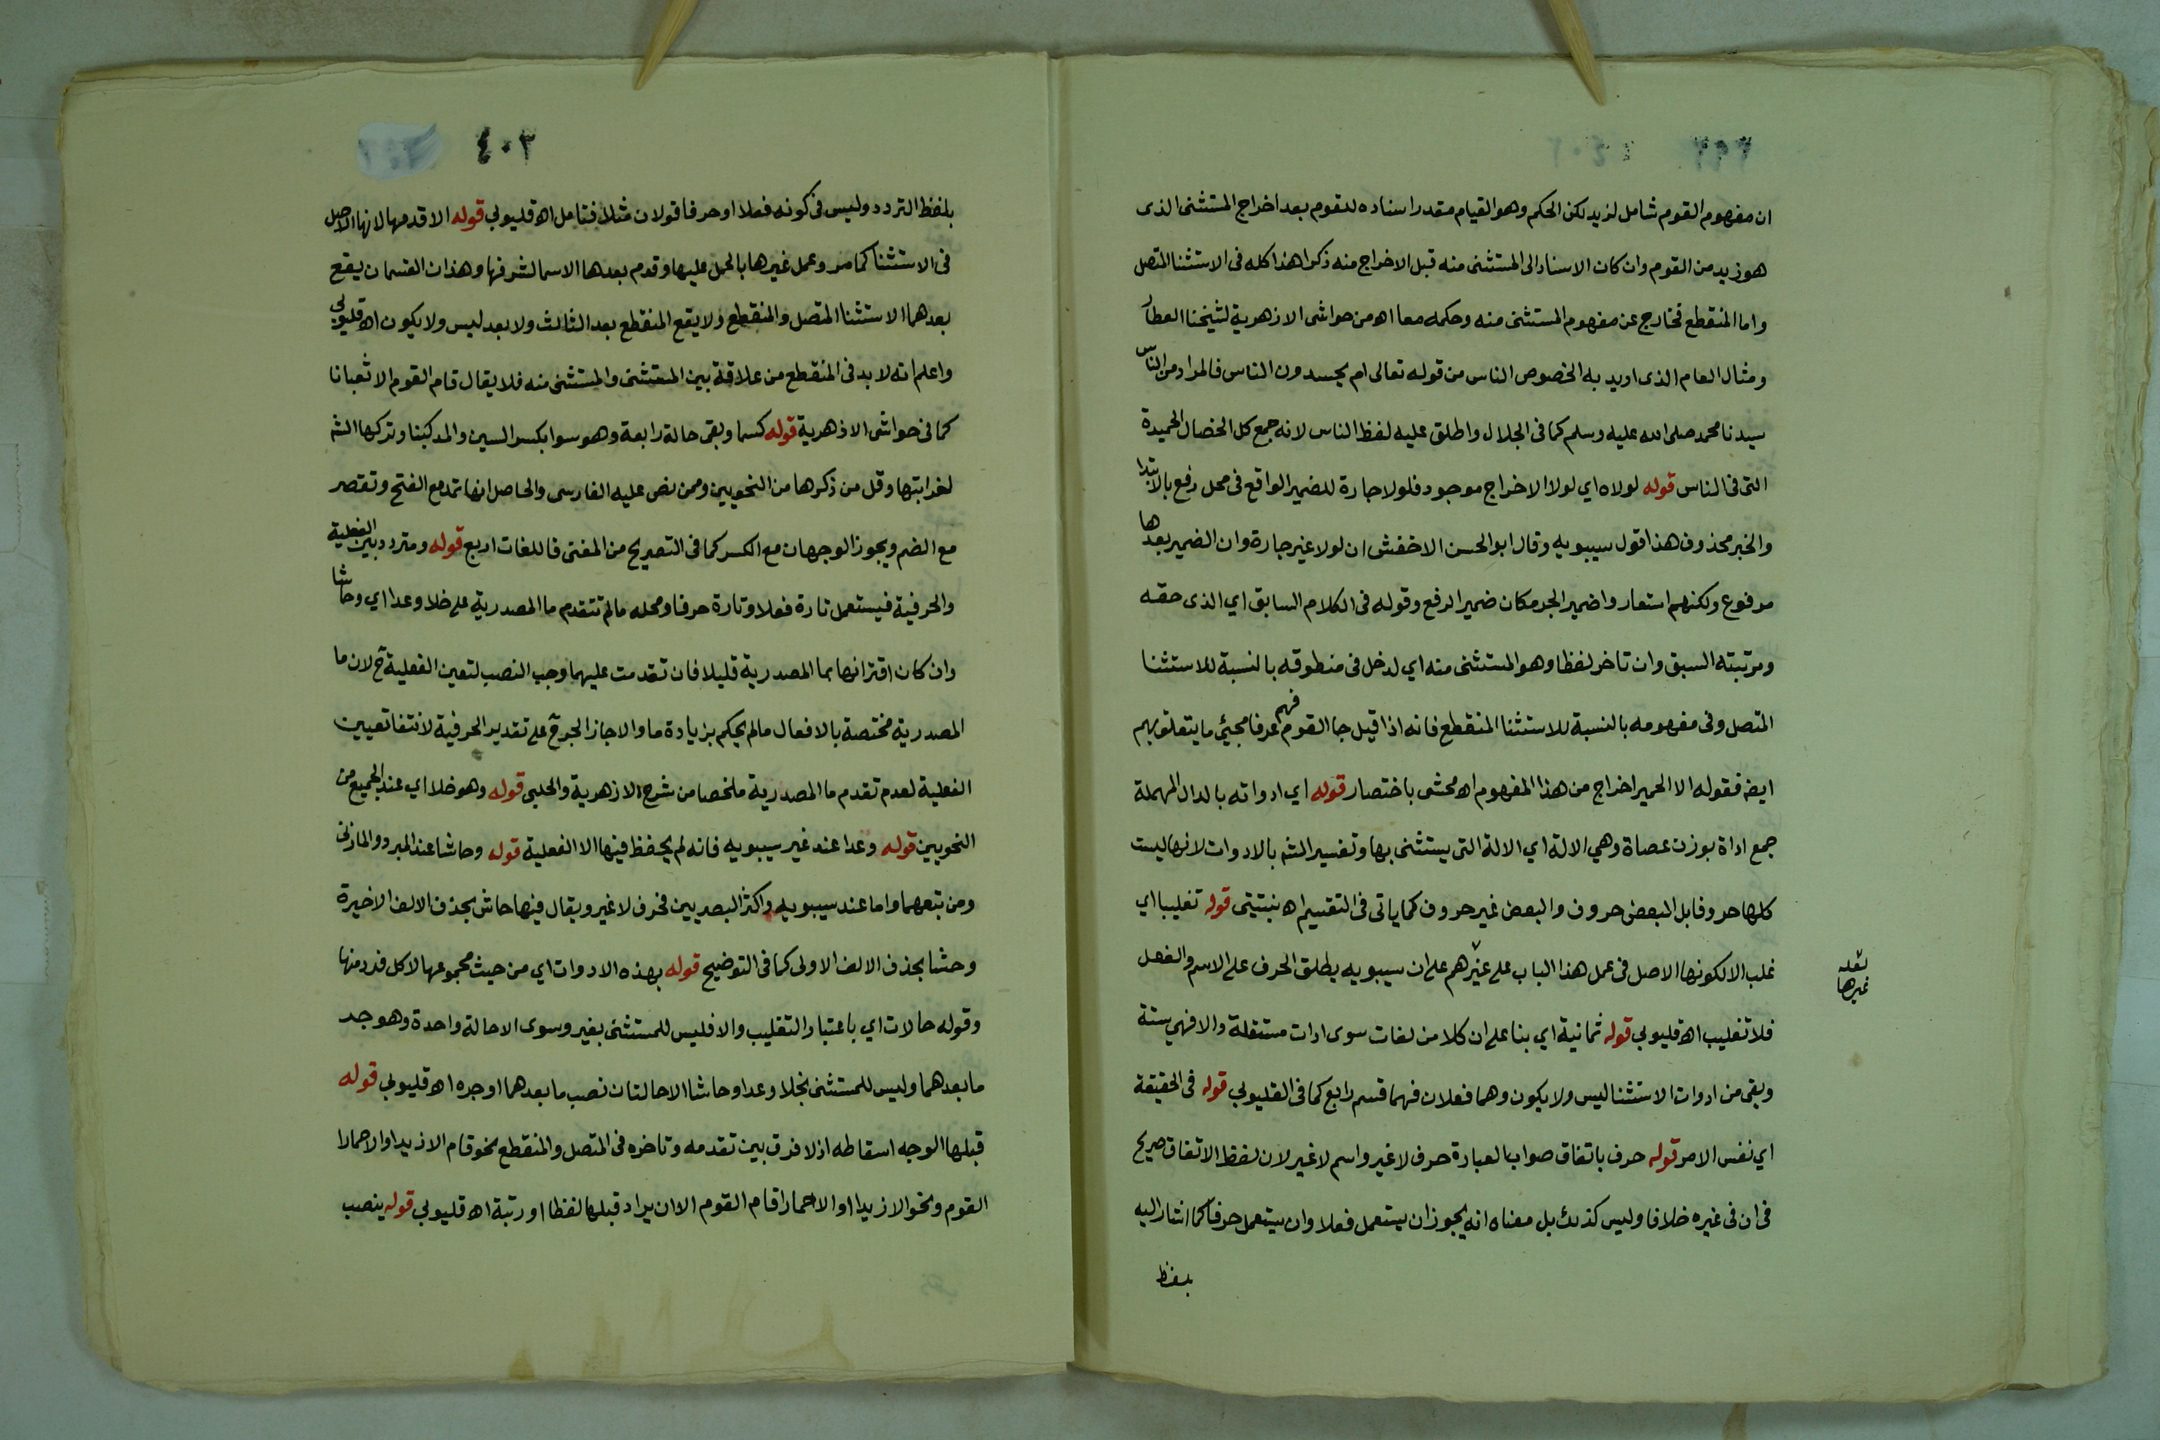 ان مفهوم القوم شامل لزيد لكن الحكم وهو القيام مقدر اسناده للقوم بعد اخراج المستثنى الذى
هو زيد من القوم وان كان الاسناد الى المستثنى منه قبل الاخراج منه ذكرا هذا كله فى الاستثنا المتصل
واما المنقطع فخارج عن مفهوم المستثنى منه وحكمه معا اه من حواشى الازهرية لشيخنا العطار
ومثال العام الذى اريد به الخصوص الناس من قوله تعالى ام يحسدون الناس فالمراد من الناس
سيدنا محمد صلى الله عليه وسلم كما فى الجلال واطلق عليه لفظ الناس لانه جمع كل الخصال الحميدة
التى فى الناس قوله لولاه اي لولا الاخراج موجود فلولا جارة للضمير الواقع فى محل رفع بالابتدا
والخبر محذوف هذا قول سيبويه وقال ابو الحسن الاخفش ان لولا غير جارة وان الضمير بعدها
مرفوع ولكنهم استعاروا ضمير الجر مكان ضمير الرفع وقوله فى الكلام السابق اي الذى حقه
ومرتبته السبق وان تاخر لفظا وهو المستثنى منه اي لدخل فى منطوقه بالنسبة للاستثنا
المتصل وفى مفهومه بالنسبة للاستثنا المنقطع فانه اذا قيل جا القوم فهم عرفا مجيئ ما يتعلق بهم
ايضه فقوله الا الحمير اخراج من هذا المفهوم اه محشى باختصار قوله اي ادواته بالدال المهملة
جمع اداة بوزن عصاة وهي الالة اي الالة التى يستثنى بها وتفسير الشه بالادوات لانها ليست
كلها حروفا بل البعض حروف والبعض غير حروف كما ياتى فى التقسيم اه نبتيتى قوله تغليبا اي
غلب الا لكونها الاصل فى عمل هذا الباب على غيرهم على ان سيبويه يطلق الحرف على الاسم والفعل
لعله
غيرها
فلا تغليب اه قليوبي قوله ثمانية اي بنا على ان كلا من لغات سوى ادات مستقلة والا فهي ستة
وبقى من ادوات الاستثنا ليس ولا يكون وهما فعلان فهما قسم رابع كما فى القليوبي قوله فى الحقيقة
اي نفس الامر قوله حرف باتفاق صواب العبارة حرف لا غير واسم لا غير لان لفظ الاتفاق صريح
فى ان فى غيره خلافا وليس كذلك بل معناه انه يجوز ان يستعمل فعلا وان يستعمل حرفا كما اشار اليه
بلفظ
٤٠٣
بلفظ التردد وليس فى كونه فعلا او حرفا قولان مثلا فتامل اه قليوبي قوله الا قدمها لانها الاصل
فى الاستثنا كما مر وعمل غيرها بالحمل عليها وقدم بعدها الاسما لشرفها وهذان القسمان يقع
بعدهما الاستثنا المتصل والمنقطع ولا يقع المنقطع بعد الثالث ولا بعد ليس ولا يكون اه قليوبي
واعلم انه لا بد فى المنقطع من علاقة بين المستثنى والمستثنى منه فلا يقال قام القوم الا ثعبانا
كما فى حواشى الازهرية قوله كسما وبقى حالة رابعة وهو سوا بكسر السين والمد كبنا وتركها الشه
لغرابتها وقل من ذكرها من النحويين وممن نص عليه الفارسى والحاصل انها تمد مع الفتح وتقصر
مع الضم ويجوز الوجهان مع الكسر كما فى التصريح من المغنى فاللغات اربع قوله ومتردد بين الفعلية
والحرفية فيستعمل تارة فعلا وتارة حرفا ومحله مالم تتقدم ما المصدرية على خلا وعدا اي وحاشا
وان كان اقترانها بما المصدرية قليلا فان تقدمت عليهما وجب النصب لتعين الفعلية ح لان ما
المصدرية مختصة بالافعال مالم يحكم بزيادة ما والا جاز الجر ح على تقدير الحرفية لانتفا تعيين
الفعلية لعدم تقدم ما المصدرية ملخصا من شرح الازهرية والحلبى قوله وهو خلا اي عند الجميع من
النحويين قوله وعدا عند غير سيبويه فانه لم يحفظ فيها الا الفعلية قوله وحاشا عند المبرد والمازنى
ومن تبعهما واما عند سيبويه واكثر البصريين فحرف لا غير ويقال فيها حاش بحذف الالف الاخيرة
وحشا بحذف الالف الاولى كما فى التوضيح قوله بهذه الادوات اي من حيث مجموعها لا كل فرد منها
وقوله حالات اي باعتبار التقليب والا فليس للمستثنى بغير وسوى الا حالة واحدة وهو جر
ما بعدهما وليس للمستثنى بخلا وعدا وحاشا الا حالتان نصب ما بعدهما او جره اه قليوبي قوله
قبلها الوجه اسقاطه اذ لا فرق بين تقدمه وتاخره فى المتصل والمنقطع نحو قام الا زيدا او الا حمارا
القوم ونحو الا زيدا او الا حمارا قام القوم الا ان يراد قبلها لفظا او رتبة اه قليوبي قوله ينصب